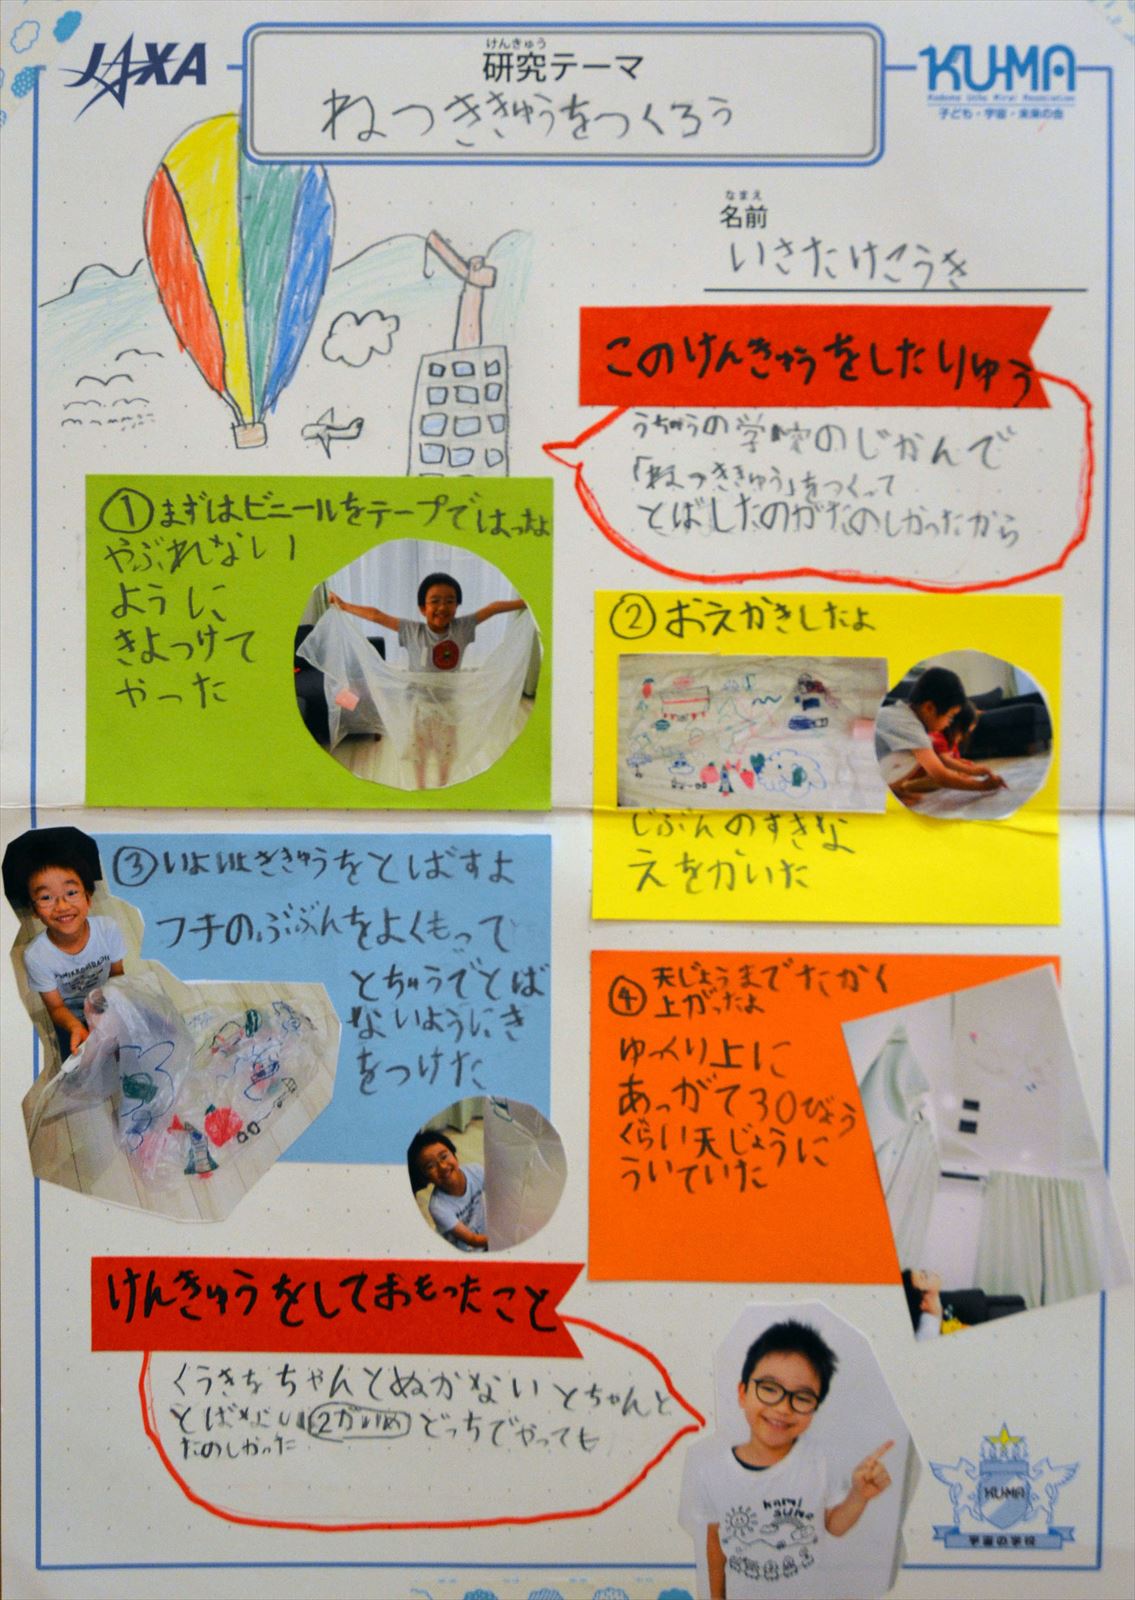 JAXA
けんきゅう
研究テーマ
ねつききゅうをつくろう
KU-MA
子ども・宇宙・未来の会
なまえ
名前
いさたけこうき
このけんきゅうをしたりゆう
うちゅうの学校のじかんで
「ねつききゅう」をつくって
とばしたのがたのしかったから
①まずはビニールをテープではったよ
やぶれない
ように
きよつけて
やった
②おえかきしたよ
じぶんのすきな
えをかいた
③いよいよききゅうをとばすよ
フチのぶぶんをよくもって
とちゅうでとば
ないようにき
をつけた
④天じょうまでたかく
上がったよ
ゆっくり上に
あっがて30びょう
くらい天じょうに
ういていた
けんきゅうをしておもったこと
くうきをちゃんとぬかないとちゃんと
とばない 2かいめ どっちでやっても
たのしかった
KU-MA